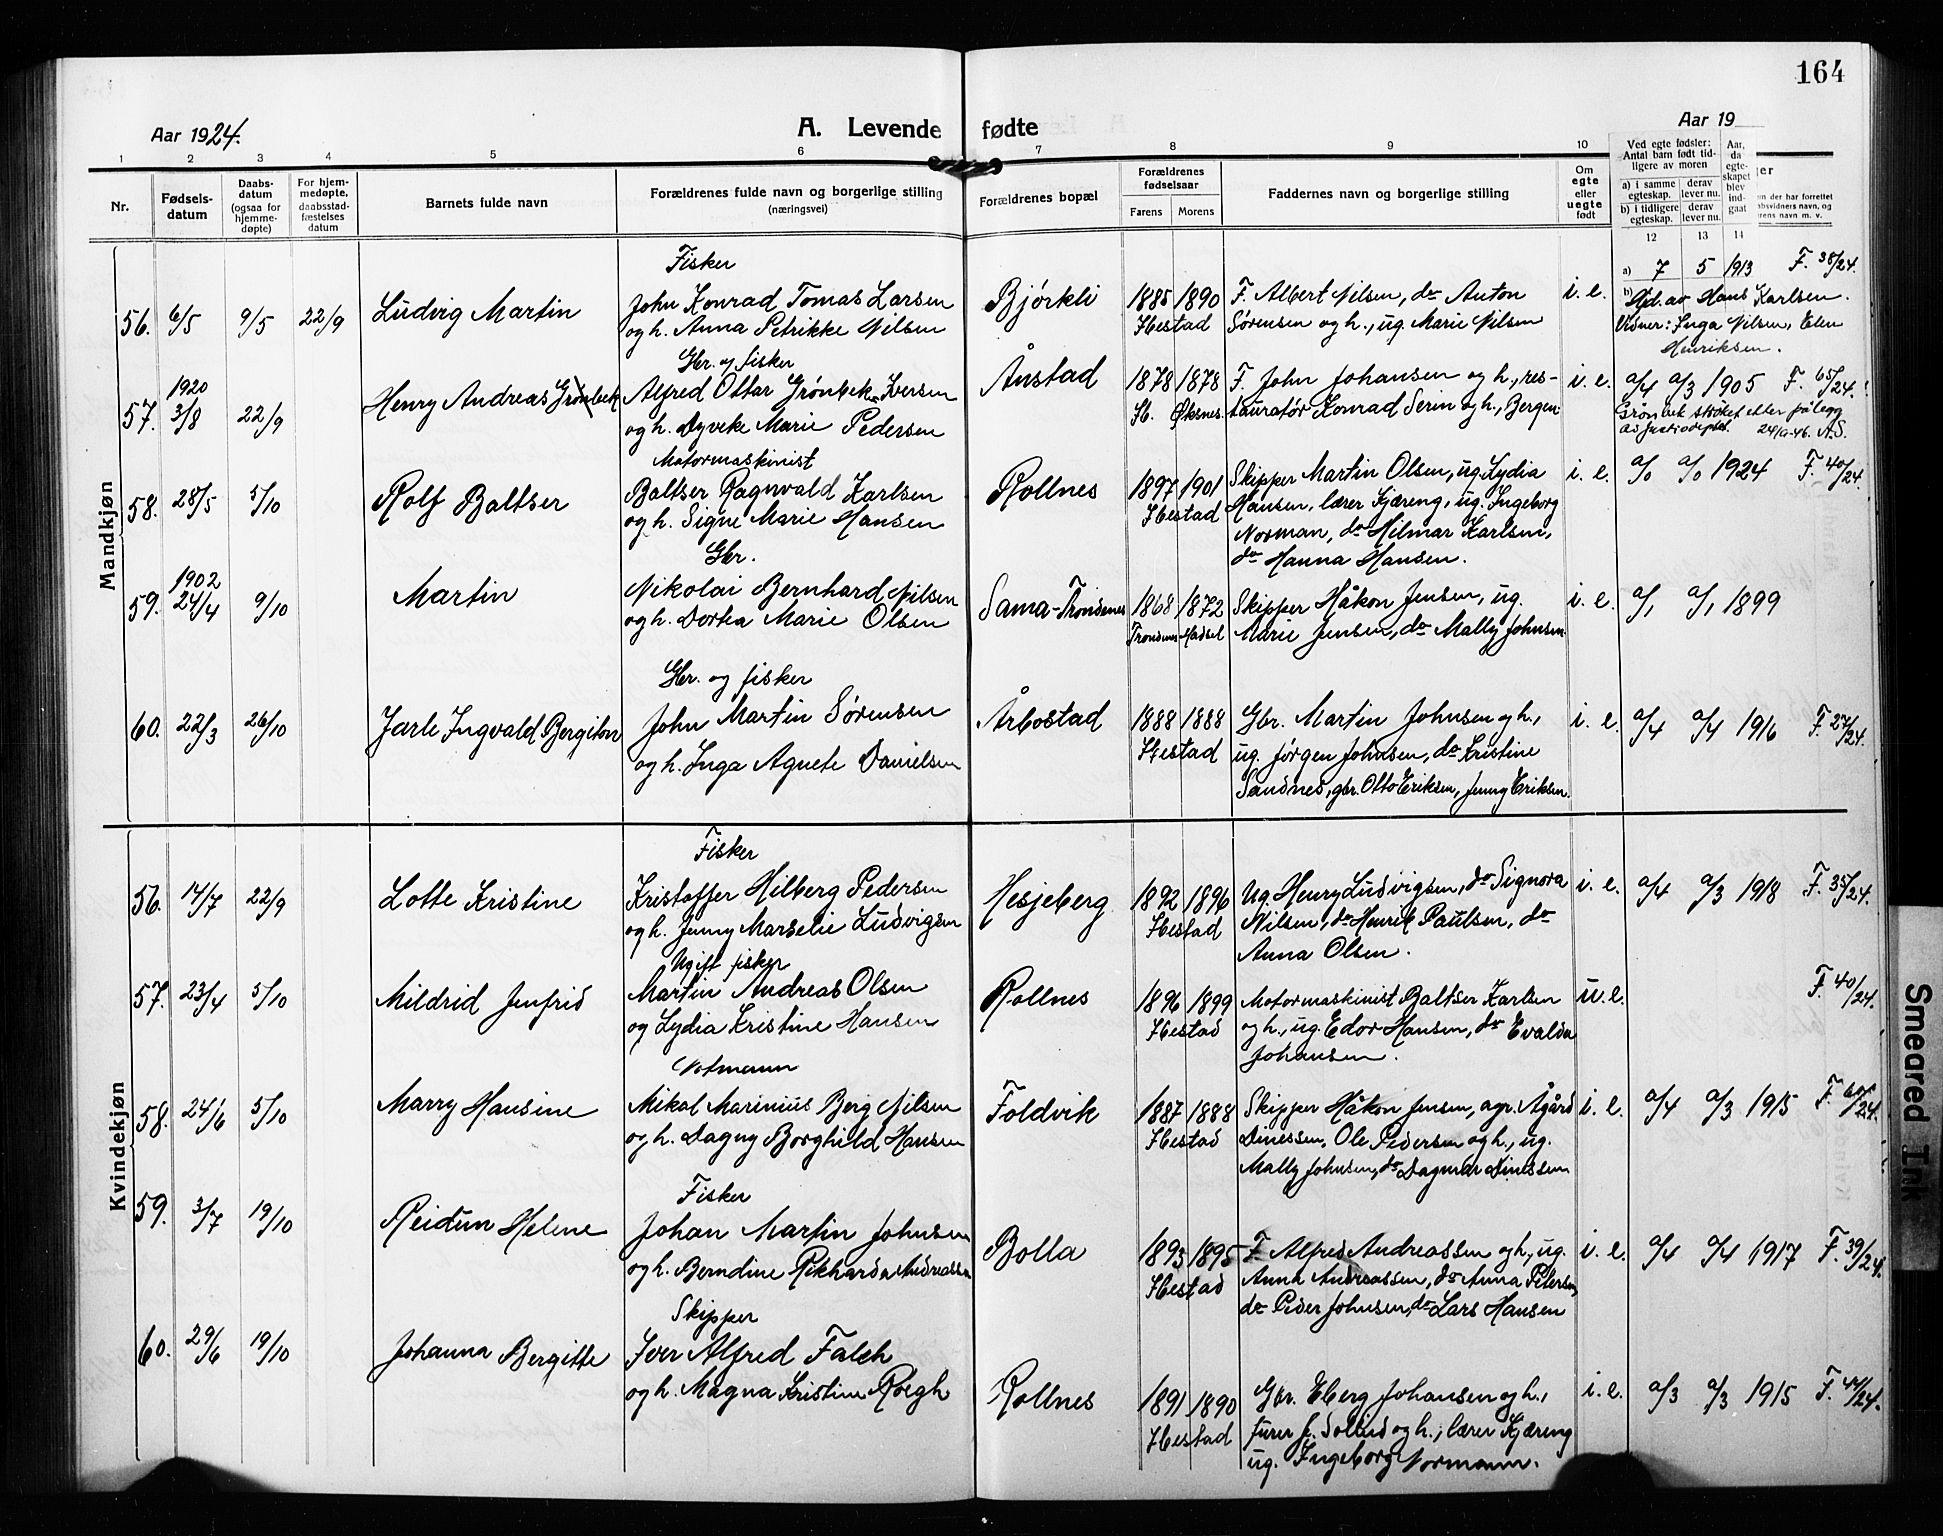 164
Aar 1924.
A. Levende fødte
Aar 19
1 2 3 4 5 6 7 8 9 10
Nr.
Fødsels-
datum
Daabs-
datum
(ogsaa for
hjemme-
døpte)
For hjem-
medøpte,
daabsstad-
fæstelses
datum
Barnets fulde navn
Forældrenes fulde navn og borgerlige stilling
(næringsvei)
Forældrenes bopæl
Forældrenes
fødselsaar
Farens Morens
Faddernes navn og borgerlige stilling
Om
egte
eller
uegte
født
Ved egte fødsler:
Antal barn født tid-
ligere av moren
a) i samme
egteskap.
derav
lever nu.
b) i tidligere
egteskap.
derav
lever nu.
Aar,
da
egte-
skapet
blev
ind-
gaat
12 13 14
ger
n der har forrettet
absvidners navn, og
rens navn m. v.
Mandkjøn
56. 6/5 9/5 22/9 Ludvig Martin
Fisker
John Konrad Tomas Larsen
og h. Anna Petrikke Nilsen
Bjørkli
1885 1890
Ibestad
F. Albert Nilsen, do Anton
Sørensen og h., ug. Marie Nilsen
i. e.
a) 7 5 1913 F. 38/24.
b)
Hjd. av Hans Karlsen.
Vidner: Inga Nilsen, Elen
Henriksen.
57. 1920
3/8 22/9 Henry Andreas Grønbek
Gbr. og fisker
Alfred Ottar Grønbek Iversen
og h. Dyveke Marie Pedersen
Ånstad
1878 1878
Ib. Øksnes.
F. John Johansen og h., res-
tauratør Konrad Seren og h., Bergen
i. e.
a/4 a/3 1905 F. 65/24.
Grønbek strøket etter pålegg
av Justisdept. 24/9-46. A.S.
58. 28/5 5/10 Rolf Baltser
Motormaskinist
Baltser Ragnvald Karlsen
og h. Signe Marie Hansen
Rollnes
1897 1901
Ibestad
Skipper Martin Olsen, ug. Lydia
Hansen, lærer Kjæreng, ug. Ingeborg
Norman, do Hilmar Karlsen,
do Hanna Hansen.
i. e.
a/0 a/0 1924 F. 40/24.
59. 1902
24/4 9/10 Martin
Gbr.
Nikolai Bernhard Nilsen
og h. Dortea Marie Olsen
Sama-Trondenes
1868 1872
Trondenes Hadsel
Skipper Håkon Jensen, ug.
Marie Jensen, do Mally Johnsen
i. e.
a/1 a/1 1899
60. 22/3 26/10 Jarle Ingvald Bergiton
Gbr. og fisker
John Martin Sørensen
og h. Inga Agnete Danielsen
Årbostad
1888 1888
Ibestad
Gbr. Martin Johnsen og h.,
ug. Jørgen Johnsen, do Kristine
Sandnes, gbr. Otto Eriksen, Jenny Eriksen.
i. e.
a/4 a/4 1916 F. 27/24.
Kvindekjøn
56. 14/7 22/9 Lotte Kristine
Fisker
Kristoffer Hilberg Pedersen
og h. Jenny Marselie Ludvigsen
Hesjeberg
1892 1896
Ibestad
Ug. Henry Ludvigsen, do Signora
Nilsen, do Henrik Paulsen, do
Anna Olsen.
i. e.
a/4 a/3 1918 F. 35/24.
57. 23/4 5/10 Mildrid Jenfrid
Ugift fisker
Martin Andreas Olsen
og Lydia Kristine Hansen
Rollnes
1896 1899
Ibestad
Motormaskinist Baltser Karlsen
og h., ug. Edor Hansen, do Evalda
Johansen.
u. e.
F. 40/24.
58. 24/6 5/10 Marry Hansine
Notmann
Mikal Marinius Berg Nilsen
og h. Dagny Borghild Hansen
Foldvik
1887 1888
Ibestad
Skipper Håkon Jensen, agr. Ågård
Dinessen, Ole Pedersen og h., ug.
Mally Johnsen, do Dagmar Dinessen
i. e.
a/4 a/3 1915
59. 3/7 19/10 Reidun Helene
Fisker
Johan Martin Johnsen
og h. Berndine Rikharda Andreassen
Bolla
1893 1895
Ibestad
F. Alfred Andreassen og h., ug.
Anna Andreassen, do Anna Petersen,
do Peder Johnsen, do Lars Hansen
i. e.
a/4 a/4 1917 F. 39/24.
60. 29/6 19/10 Johanna Bergitte
Skipper
Iver Alfred Falch
og h. Magna Kristine Røegh
Rollnes
1891 1890
Ibestad
Gbr. Eberg Johansen og h.,
og h., lærer Kjæreng
ug. Ingeborg Normann.
i. e.
a/3 a/3 1915 F. 44/24.
Smeared Ink